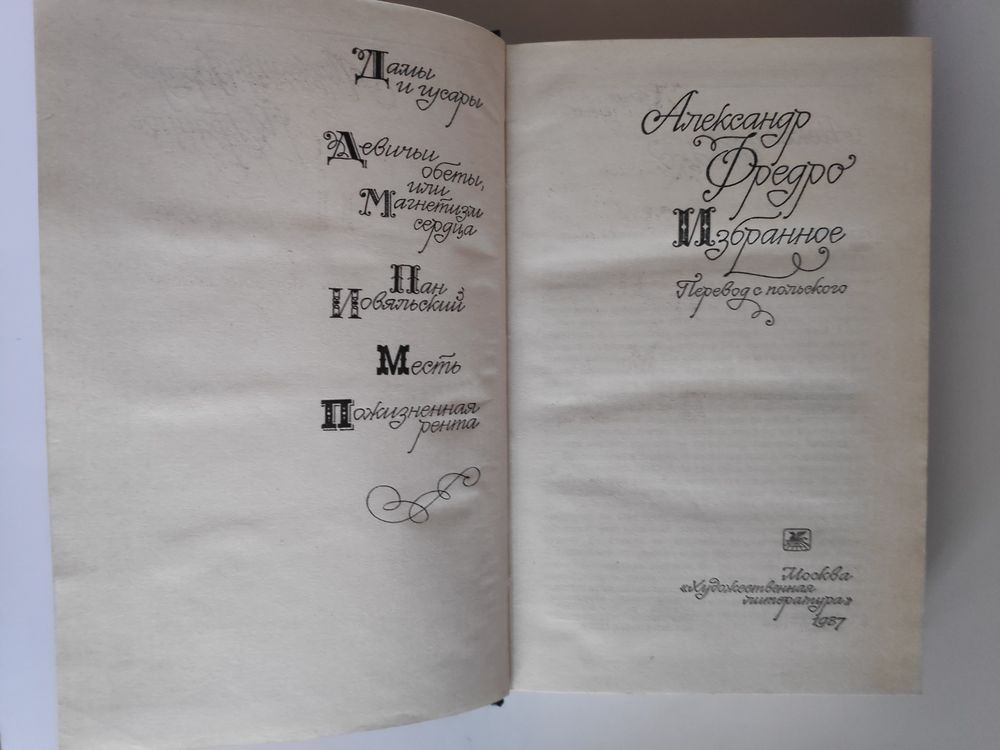 Дамы
и гусары
Девичьи
обеты,
или
Магнетизм
сердца
Пан
Йовяльский
Месть
Пожизненная
рента
Александр
Фредро
Избранное
Перевод с польского
Москва
«Художественная
литература»
1987